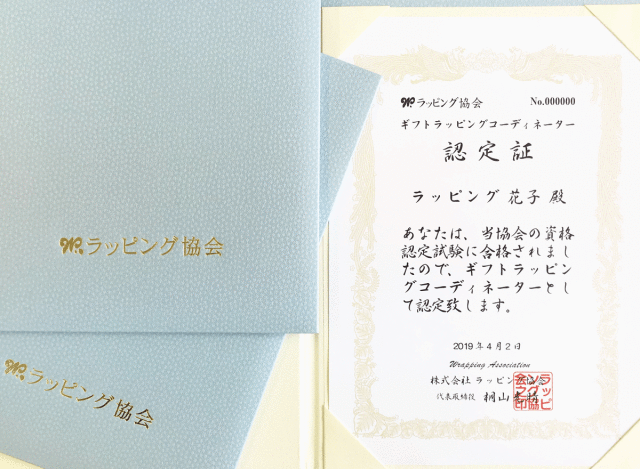 W. ラッピング協会
W. ラッピング協会
W. ラッピング協会 No.000000
ギフトラッピングコーディネーター
認定証
ラッピング 花子 殿
あなたは、当協会の資格
認定試験に合格されまし
たので、ギフトラッピン
グコーディネーターとし
て認定致します。
2019年4月2日
Wrapping Association
株式会社 ラッピング協会
代表取締役 桐山